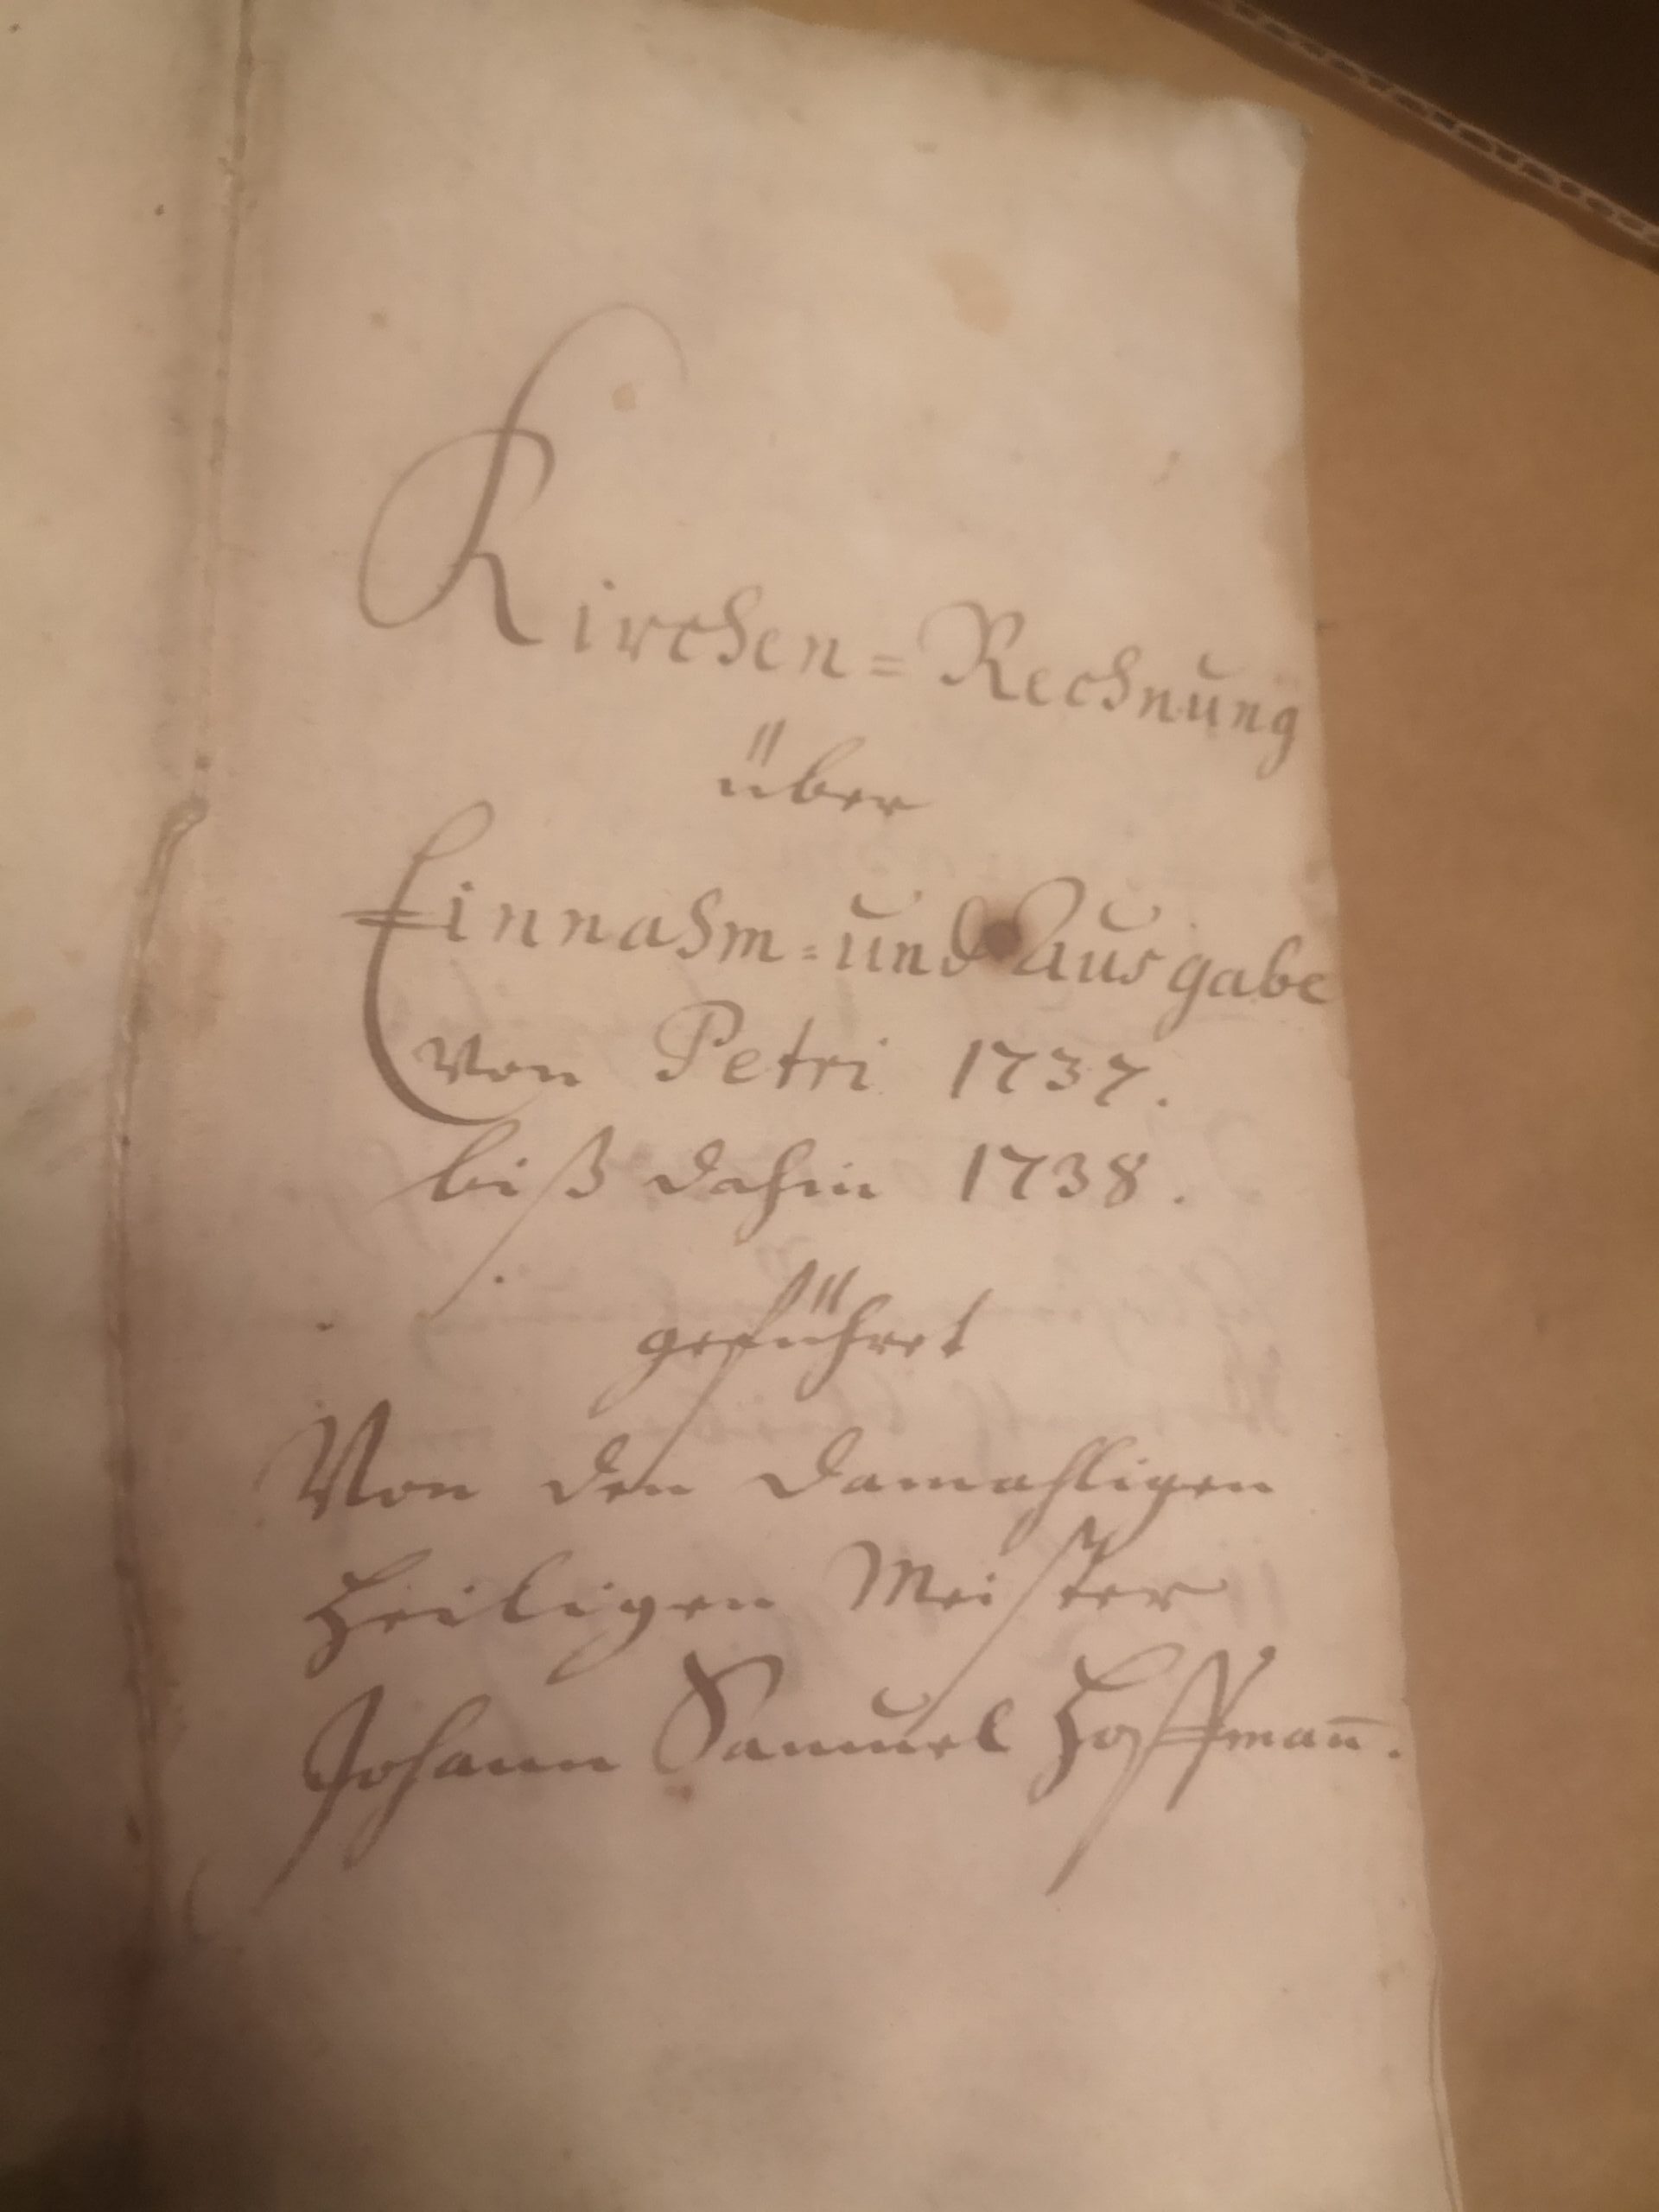 Kirchen=Rechnung
über
Einnahm=und Ausgabe
von Petri 1737.
biß dahin 1738.
geführet
Von den damahligen
Heiligen Meister
Johann Samuel Hoffman̄.